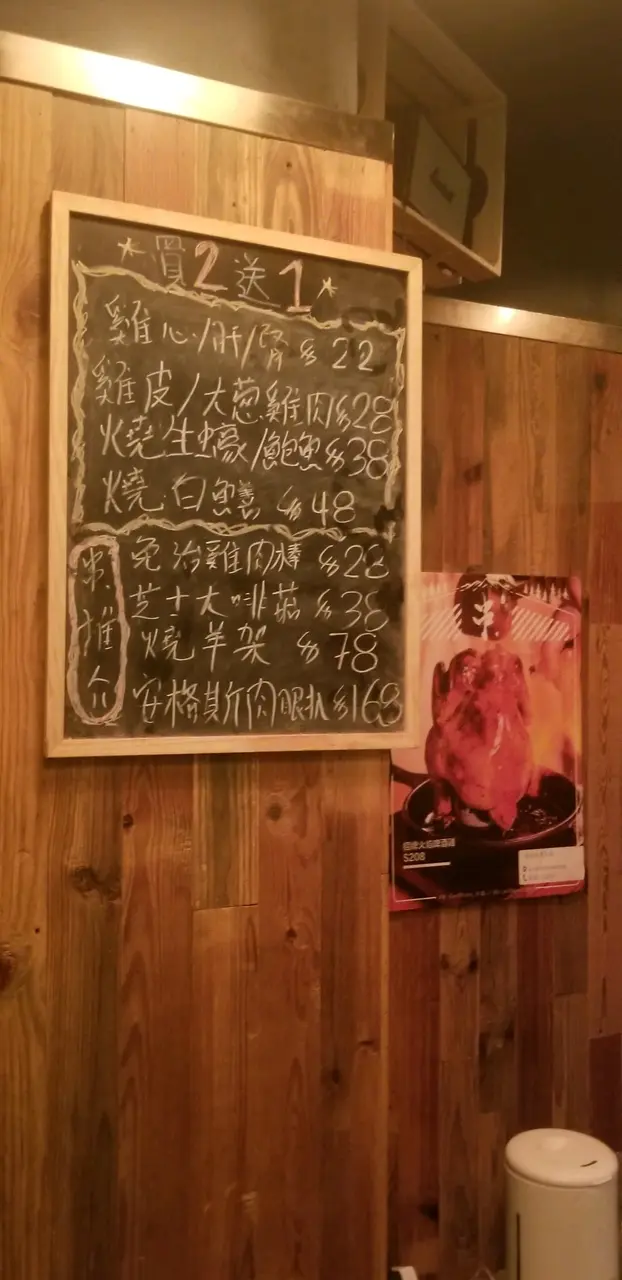 *買2送1*
雞心/肝/腎 $22
雞皮/大葱雞肉$28
燒生蠔/鮑魚$38
燒白鱔 $48
串推介
免治雞肉棒 $28
芝士大啡菇 $38
燒羊架 $78
安格斯肉眼扒$168
串
火焰啤酒雞
$208